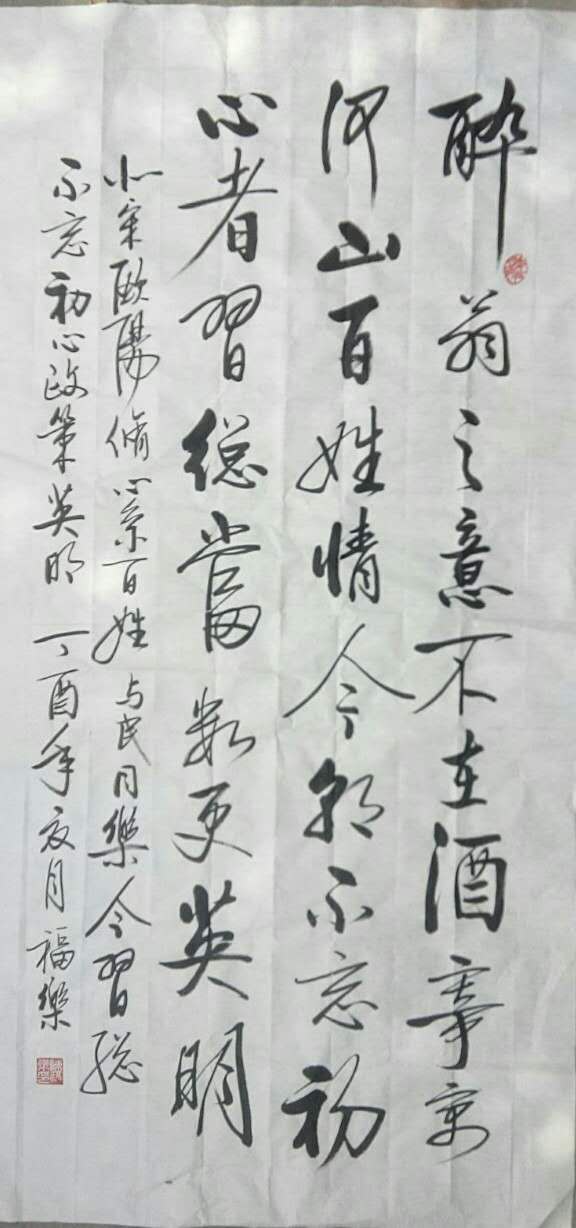 醉翁之意不在酒
河山百姓情今朝不忘初
心者習總當數更英明
北宋歐陽脩心系百姓与民同樂今習總
不忘初心政策英明丁酉年亥月福樂